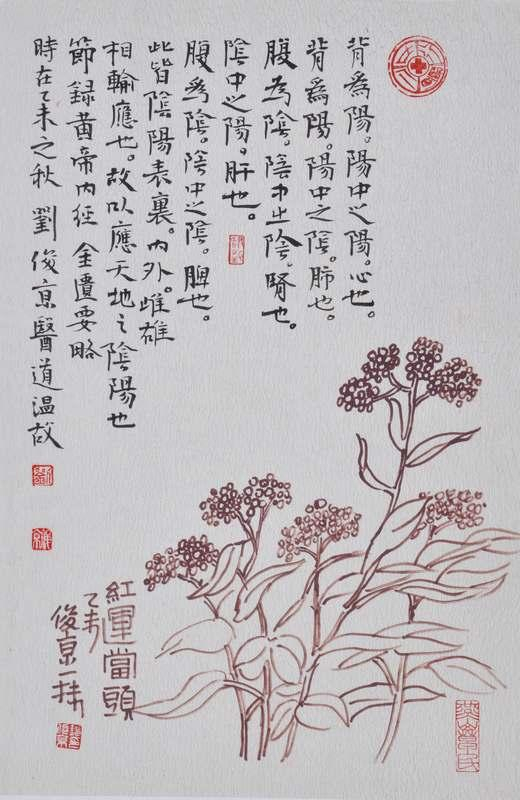 背為陽。陽中之陽。心也。
背爲陽。陽中之陰。肺也。
腹為陰。陰中之陰。腎也。
陰中之陽。肝也。
腹爲陰。陰中之陰。脾也。
此皆陰陽表裏。内外。雌雄
相輸應也。故以應天地之陰陽也
節録黄帝内经 金匱要略
時在乙未之秋 劉俊京醫道温故
紅運當頭
乙未
俊京一抹